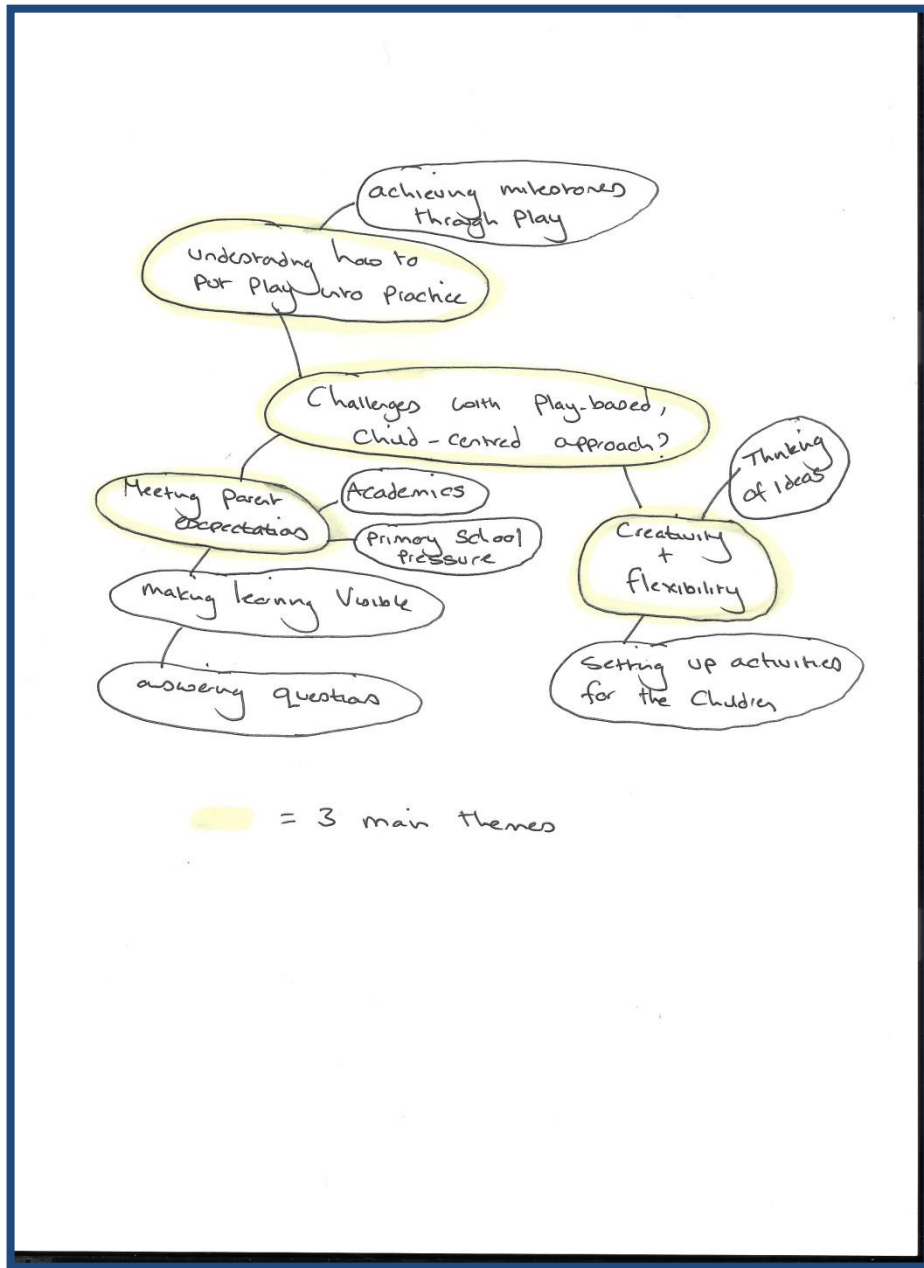 achieving milestones
through Play
understanding how to
put play into practice
Challenges with Play-based,
Child-centred approach?
Thinking
of ideas
Meeting Parent
expectations
Academics
Primary School
Pressure
Creativity
+
flexibility
making learning Visible
answering questions
Setting up activities
for the Children
= 3 main themes